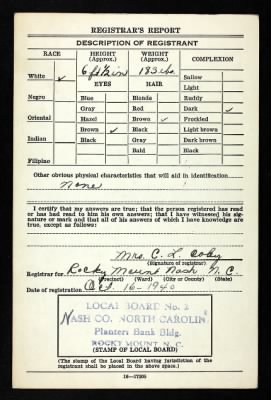 REGISTRAR'S REPORT
DESCRIPTION OF REGISTRANT
RACE HEIGHT (Approx.) WEIGHT (Approx.) COMPLEXION
White ✓ 6 ft 183 lbs. Sallow
EYES HAIR Light
Negro Blue Blonde Ruddy
Gray Red Dark ✓
Oriental Hazel Brown ✓ Freckled
Brown ✓ Black Light brown
Indian Black Gray Dark brown
Bald Black
Filipino
Other obvious physical characteristics that will aid in identification
None
I certify that my answers are true; that the person registered has read
or has had read to him his own answers; that I have witnessed his sig-
nature or mark and that all of his answers of which I have knowledge are
true, except as follows:
Mrs. C. L. Coby
(Signature of registrar)
Registrar for Rocky Mount Nash N. C.
(Precinct) (Ward) (City or County) (State)
Date of registration Oct. 16 - 1940
LOCAL BOARD No. 2
NASH CO. NORTH CAROLINA
Planters Bank Bldg.
ROCKY MOUNT, N. C.
(STAMP OF LOCAL BOARD)
(The stamp of the Local Board having jurisdiction of the
registrant shall be placed in the above space.)
16—17105